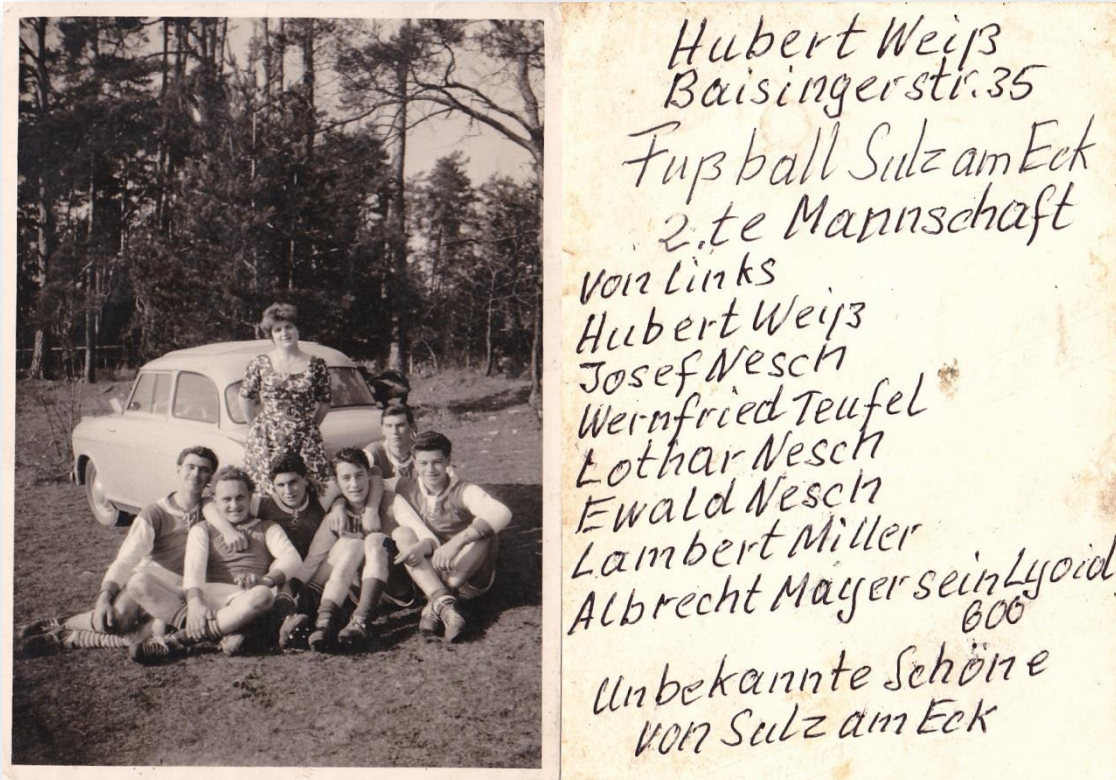 Hubert Weiß
Baisingerstr. 35
Fußball Sulz am Eck
2.te Mannschaft
von links
Hubert Weiß
Josef Nesch
Wernfried Teufel
Lothar Nesch
Ewald Nesch
Lambert Miller
Albrecht Mayer sein Lyoid
600
Unbekannte Schöne
von Sulz am Eck